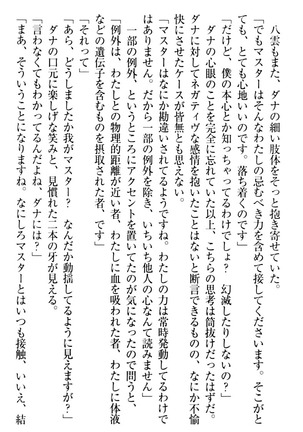 八雲もまた、ダナの細い肢体をそっと抱き寄せていた。
「でもマスターはそんなわたしの忌むべき力を含めて接してくださいます。そこがと
ても、とても心地いいのです。落ち着くのです」
「だけど、僕の本心とか知っちゃってるわけでしょ？　幻滅したりしないの？」
　ダナの心眼のことを完全に忘れていた以上、こちらの思考は筒抜けだったはずだ。
ダナに対してネガティヴな感情を抱いたことはないと断言できるものの、なにか不愉
快にさせたケースが皆無とも思えない。
「マスターはなにか勘違いされてるようですね。わたしの力は常時発動してるわけで
はありません。だから一部の例外を除き、いちいち他人の心なんて読みません」
　一部の例外、というところにアクセントを置いてたのが気になったので問うと、
「例外は、わたしとの物理的距離が近い者、わたしに血を吸われた者、わたしに体液
などの遺伝子を含むものを摂取された者、です」
「それって」
「あら、どうしましたか我がマスター？　なんだか動揺してるように見えますが？」
　ダナの口元に楽しげな笑みと、見慣れた二本の牙が見える。
「言わなくてもわかってるんだよね、ダナには？」
「まあ、そういうことになりますね。なにしろマスターとはいつも接触、いいえ、結